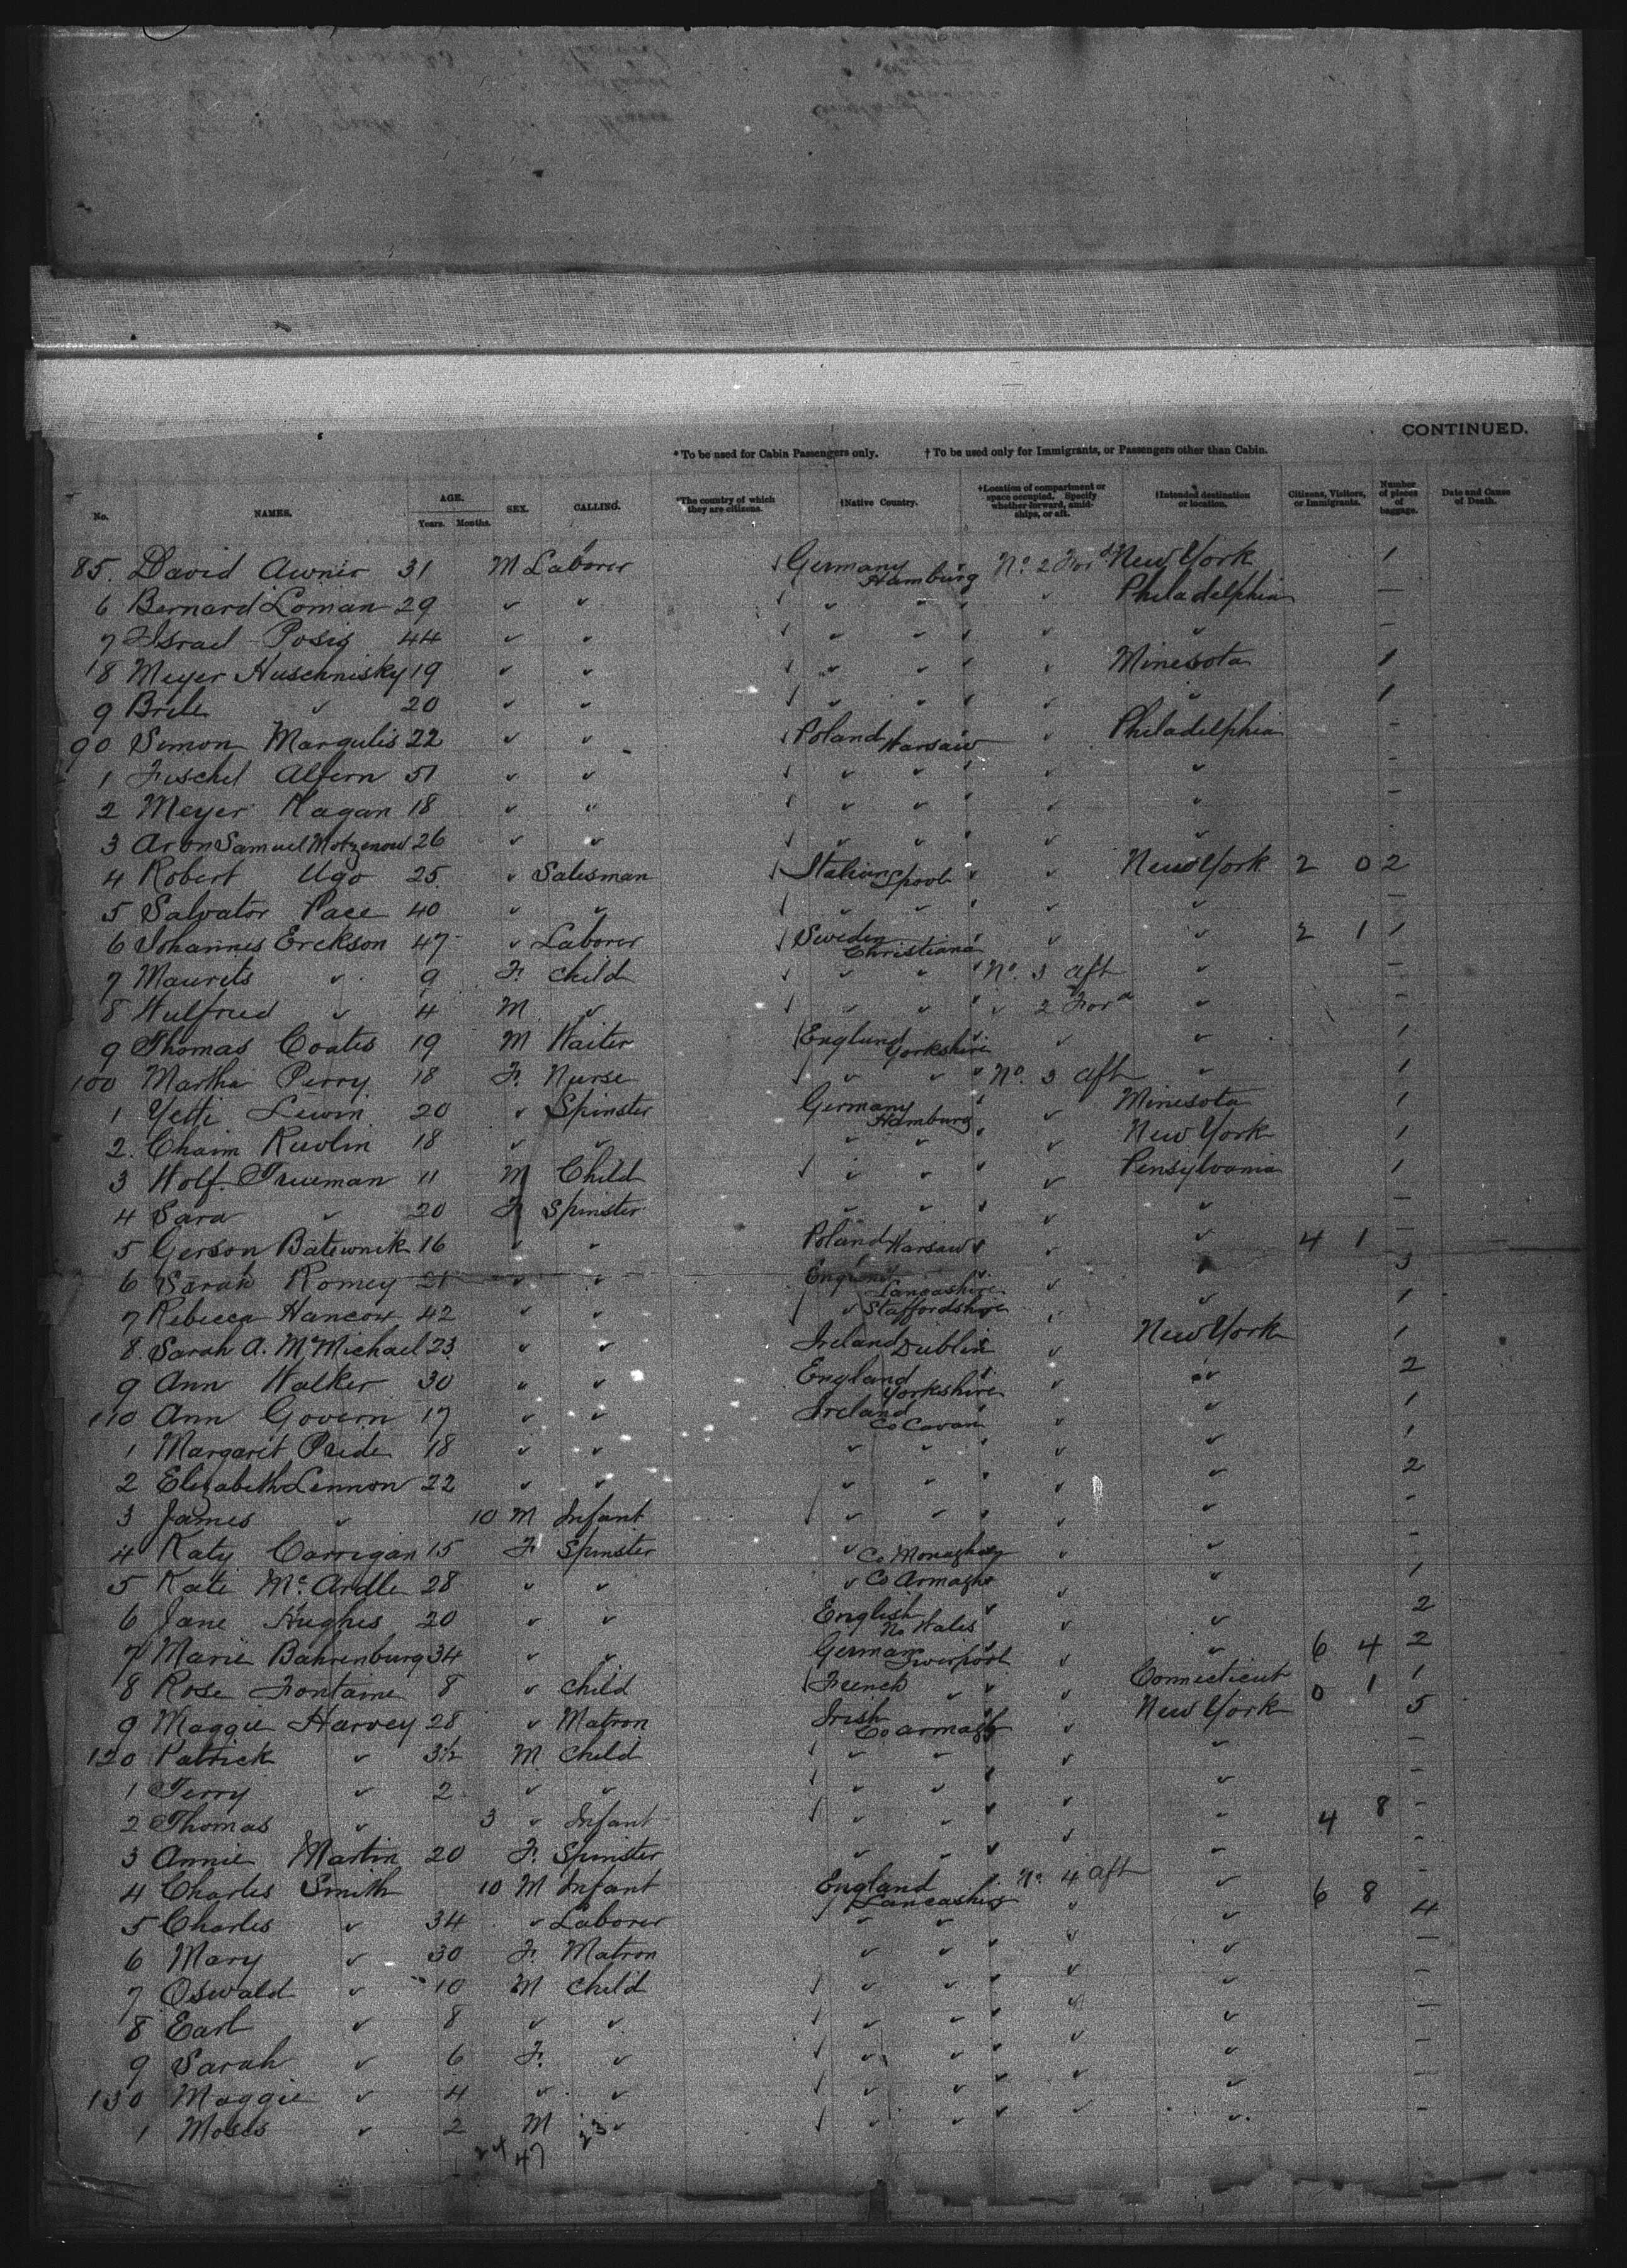 CONTINUED.
*To be used for Cabin Passengers only. †To be used only for Immigrants, or Passengers other than Cabin.
No. NAMES. AGE. Years. Months. SEX. CALLING. *The country of which they are citizens. †Native Country. †Location of compartment or space occupied. Specify whether forward, amidships, or aft. †Intended destination or location. Citizens, Visitors, or Immigrants. Number of pieces of baggage. Date and Cause of Death.
85. David Awnir 31 M Laborer Germany Hamburg No. 2 Ford New York 1
6 Bernard Loman 29 " " " " " Philadelphia —
7 Israel Posig 44 " " " " " " —
8 Meyer Huschnisky 19 " " " " " Minesota 1
9 Brile " 20 " " " " " " 1
90 Simon Margulis 22 " " Poland Warsaw " Philadelphia -
1 Fischel Alfern 51 " " " " " " -
2 Meyer Kagan 18 " " " " " " -
3 Aron Samuel Motzenow 26 " " " " " "
4 Robert Ugo 25 " Salesman Italian Lpool " New York 2 0 2
5 Salvator Pace 40 " " " " " " -
6 Johannes Erckson 47 " Laborer Sweden Christiana " " 2 1 1
7 Maurits " 9 F. Child " " No. 3 aft " -
8 Wulfred " 4 M " " " " 2 Ford " -
9 Thomas Coates 19 M Waiter England Yorkshire " " 1
100 Martha Perry 18 F. Nurse " " No. 3 aft " 1
1 Yetti Lewin 20 " Spinster Germany Hamburg " Minesota 1
2. Chaim Ruvlin 18 " " " " " New York 1
3 Wolf Trueman 11 M Child " " " Pensylvania 1
4 Sara " 20 F Spinster " " " " —
5 Gerson Batewnik 16 " " Poland Warsaw " " 4 1 —
6 Sarah Romey 21 " " England Lancashire " " 3
7 Rebecca Hancox 42 " " " Staffordshire " " 1
8. Sarah A. McMichael 23 " " Ireland Dublin " New York 1
9 Ann Walker 30 " " England Yorkshire " " 2
110 Ann Govern 17 " " Ireland Co Cavan " " 1
1 Margaret Reide 18 " " " " " " 1
2 Elizabeth Lennon 22 " " " " " " 2
3 James " 10 M Infant " " " " -
4 Katy Carrigan 15 F Spinster " Co Monaghan " " -
5 Kate McArdle 28 " " " Co Armagh " " 1
6 Jane Hughes 20 " " English No Wales " " 2
7 Marie Bahrenburg 34 " " German Liverpool " " 6 4 2
8 Rose Fontaine 8 " Child French " " Connecticut 0 1 1
9 Maggie Harvey 28 " Matron Irish Co Armagh " New York 5
120 Patrick " 3½ M Child " " " " -
1 Terry " 2 " " " " " " -
2 Thomas " 3 " Infant " " " " 4 8 -
3 Annie Martin 20 F. Spinster " " " " -
4 Charles Smith 10 M Infant England Lancashire No. 4 aft " 6 8 -
5 Charles " 34 " Laborer " " " " 4
6 Mary " 30 F. Matron " " " " —
7 Oswald " 10 M Child " " " " -
8 Earl " 8 " " " " " " —
9 Sarah " 6 F. " " " " " -
130 Maggie " 4 " " " " " " -
1 Moses " 2 M " " " " " -
24 23
47